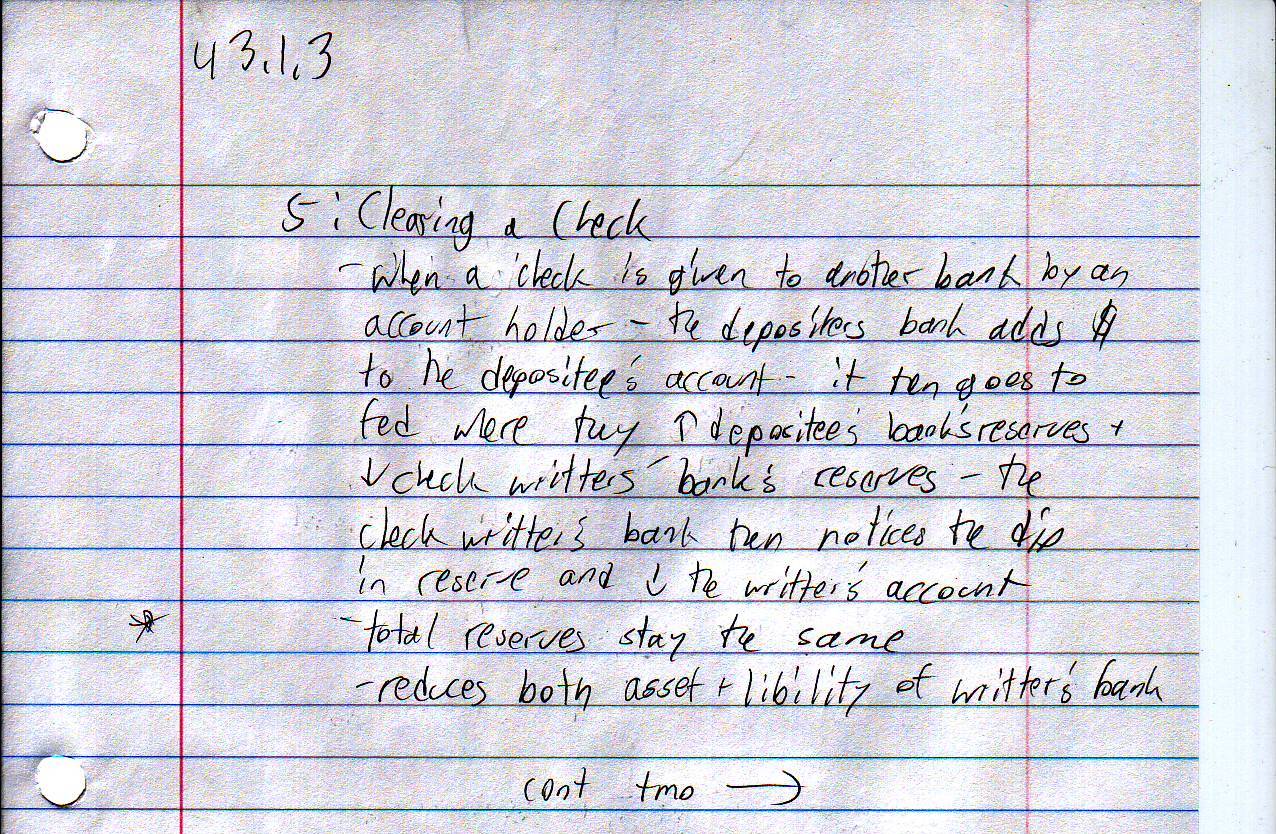 43.1.3
5: Clearing a Check
- When a check is given to another bank by an
account holder - the depositers bank adds $
to the depositee's account - it then goes to
fed where they ↑ depositee's bank's reserves +
↓ check writters' bank's reserves - the
check writter's bank then notices the dip
in reserve and ↓ the writter's account
* - total reserves stay the same
- reduces both asset + libility of writter's bank
cont tmo →